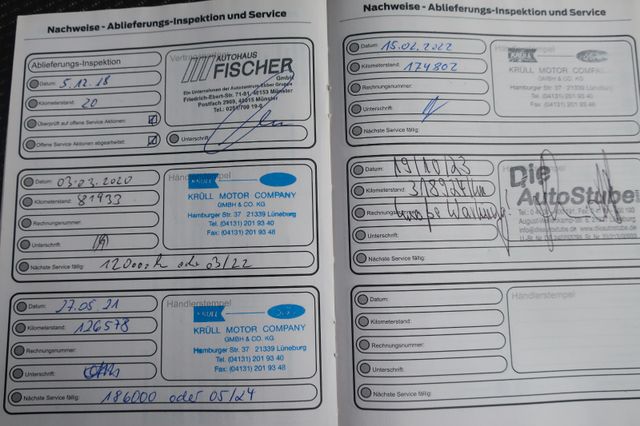 Nachweise - Ablieferungs-Inspektion und Service
Ablieferungs-Inspektion
Datum: 5.12.18
Kilometerstand: 20
Überprüft auf offene Service Aktionen:
Offene Service Aktionen abgearbeitet:
AUTOHAUS
FISCHER
GmbH
Ein Unternehmen der Autozentrum Ebber Gruppe
Friedrich-Ebert-Str. 71-81, 48153 Münster
Postfach 2969, 48016 Münster
Unterschrift:
Datum: 03.03.2020
Kilometerstand: 81933
Rechnungsnummer:
Unterschrift:
Nächste Service fällig:
03/22
Händlerstempel
KRÜLL
KRÜLL MOTOR COMPANY
GMBH & CO. KG
Hamburger Str. 37 21339 Lüneburg
Tel. (04131) 201 93 40
Fax: (04131) 201 93 48
Datum: 27.05 21
Kilometerstand: 126578
Rechnungsnummer:
Unterschrift:
Nächste Service fällig: 186000 oder 05/24
Händlerstempel
KRÜLL
KRÜLL MOTOR COMPANY
GMBH & CO. KG
Hamburger Str. 37 21339 Lüneburg
Tel. (04131) 201 93 40
Fax: (04131) 201 93 48
Nachweise - Ablieferungs-Inspektion und Service
Datum: 15.02.2022
Kilometerstand: 174802
Rechnungsnummer:
Unterschrift:
Nächste Service fällig:
KRÜLL
KRÜLL MOTOR COMPANY
GMBH & CO. KG
Hamburger Str. 37 21339 Lüneburg
Tel. (04131) 201 93 40
Fax: (04131) 201 93 48
19/10/23
Kilometerstand:
Unterschrift:
Nächste Service fällig:
Die
AutoStube
Datum:
Kilometerstand:
Rechnungsnummer:
Unterschrift:
Nächste Service fällig:
Händlerstempel